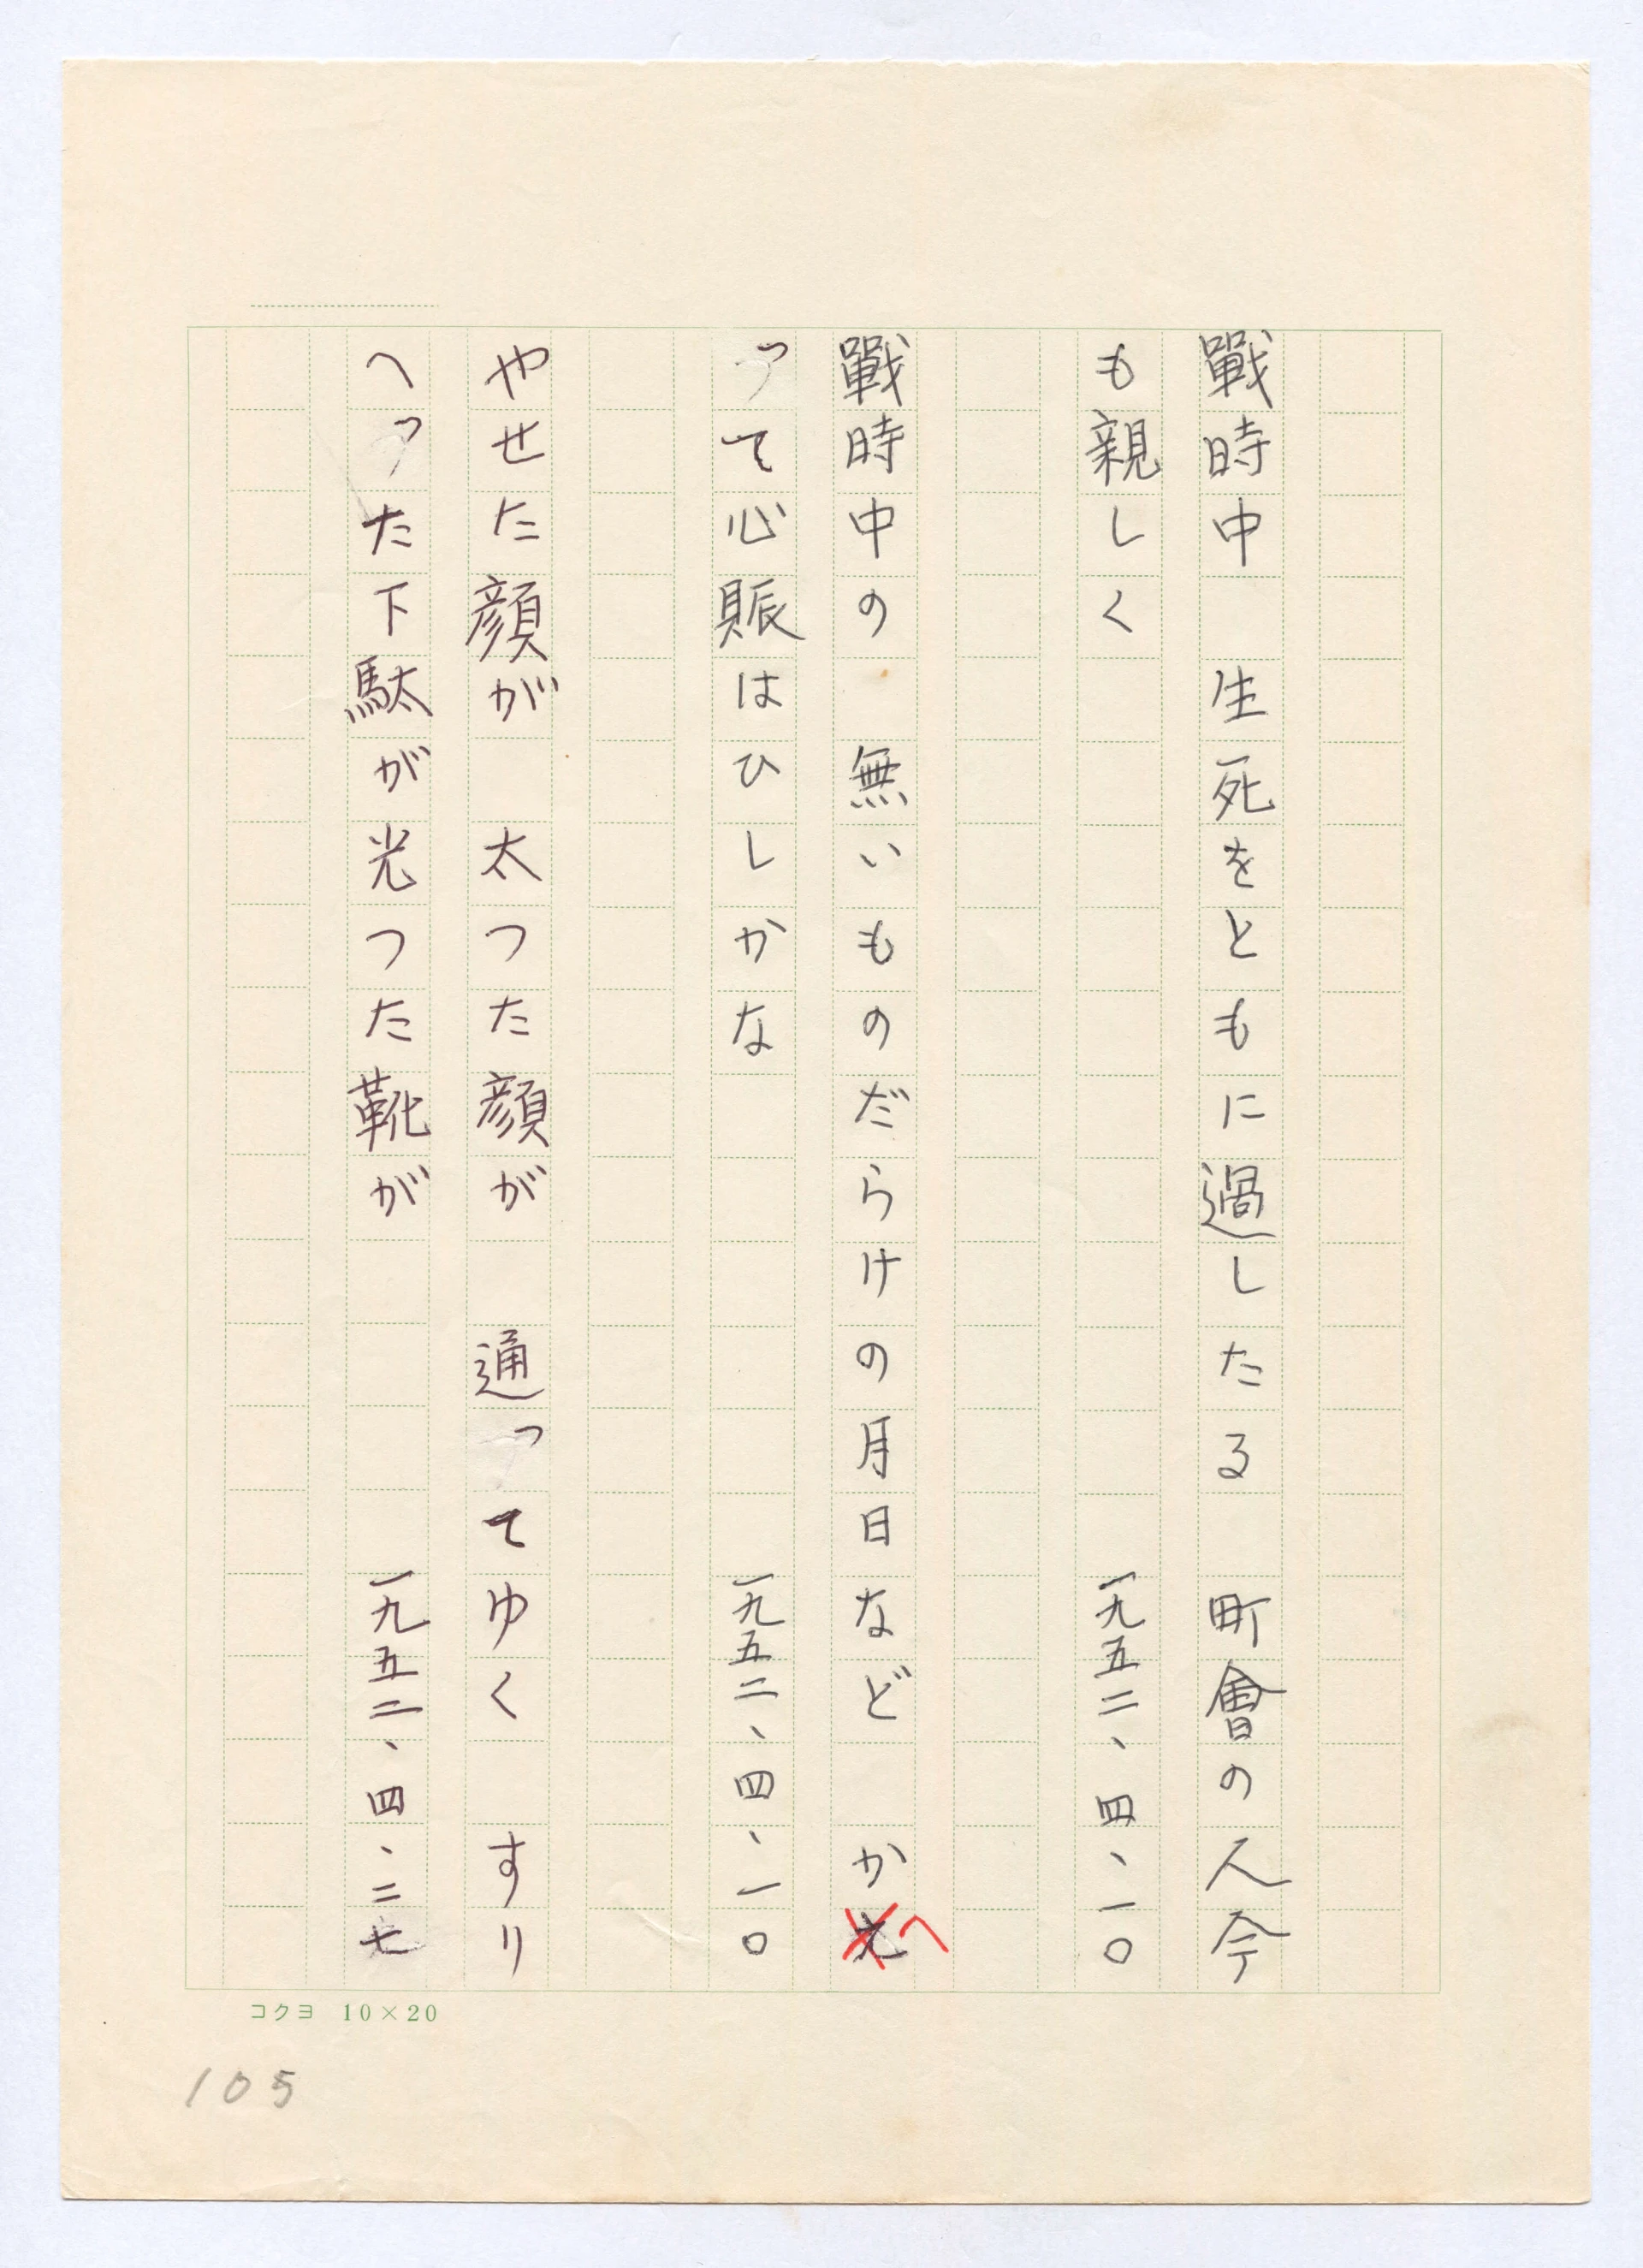 戰時中　生死をともに過したる　町會の人今
も親しく　一九五二、四、一〇
戰時中の　無いものだらけの月日など　かへ
つて心賑はひしかな　一九五二、四、一〇
やせた顔が　太つた顔が　通つてゆく　すり
へつた下駄が光つた靴が　一九五二、四、二七
コクヨ 10×20
105